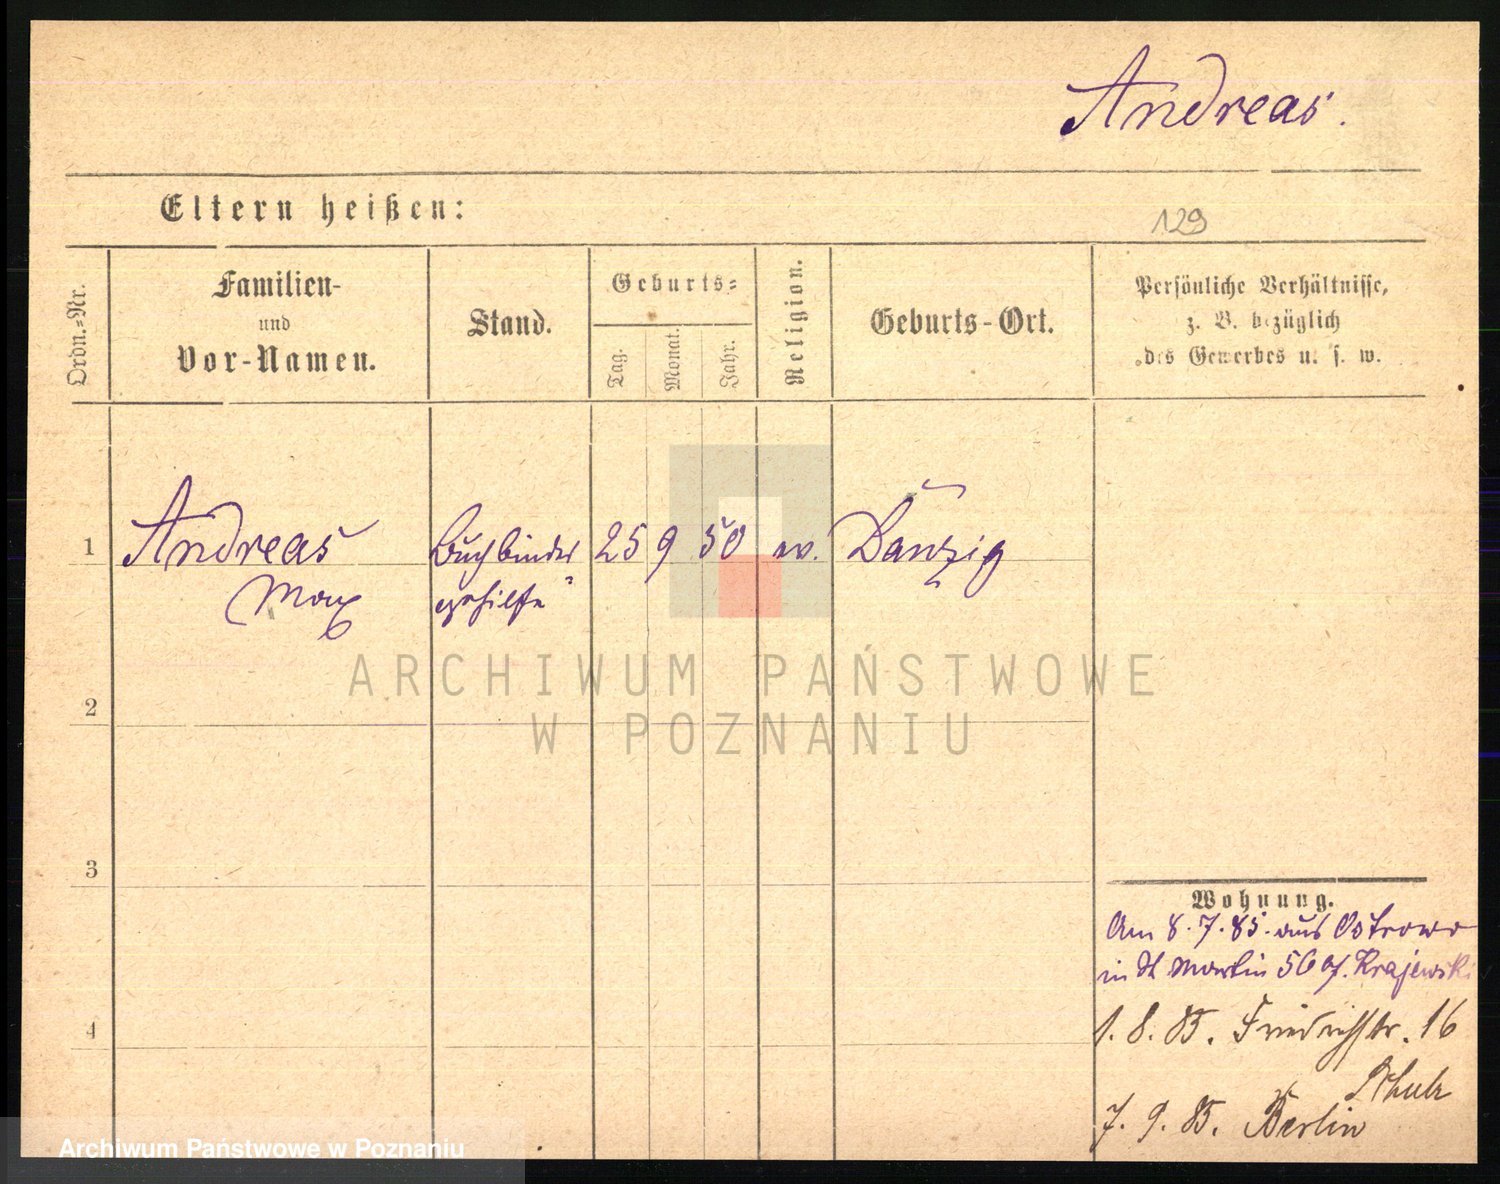 Andreas.
Eltern heißen:
129
Ordn.=Nr.
Familien-
und
Vor-Namen.
Stand.
Geburts=
Tag.
Monat.
Jahr.
Religion.
Geburts-Ort.
Persönliche Verhältnisse,
z. B. bezüglich
des Gewerbes u. s. w.
1 Andreas Buchbinder 25 9 50 ev. Danzig
Max gehilfe
ARCHIWUM PAŃSTWOWE
W POZNANIU
2
3
4
Wohnung.
Am 8.7.85. aus Ostrowo
in St. Martin 56 Krajewski
1. 8. 85. Friedrichstr. 16
Schulz
7. 9. 85. Berlin
Archiwum Państwowe w Poznaniu